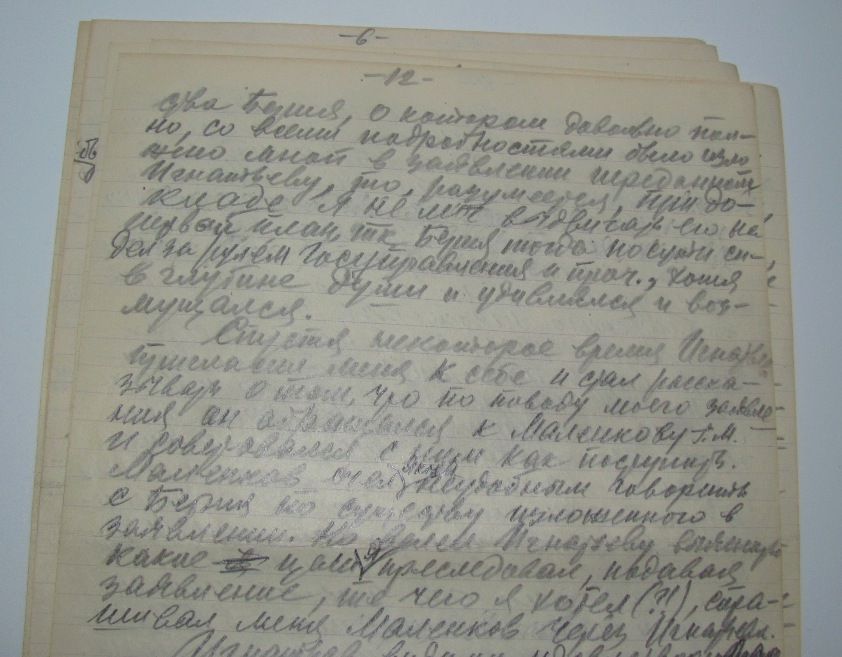 -6-
-12-
ства Берия, о котором довольно пол-
но, со всеми подробностями было изло
жено мной в заявлении переданном
Игнатьеву, то, разумеется, при до-
кладе я не мог выдвигать его на
первый план, т.к. Берия тогда по сути си-
дел за рулем Госуправления и проч., хотя
в глубине души и удивлялся и воз-
мущался.
Спустя некоторое время Игнатьев
пригласил меня к себе и стал расска-
зывать о том, что по поводу моего заявле-
ния он обращался к Маленкову Г.М.
и советовался с ним как поступить.
Маленков счел якобы неудобным говорить
с Берия по существу изложенного в
заявлении. Но велел Игнатьеву выяснить
какие цели я преследовал, подавая
заявление, т.е. чего я хотел (?!), спра-
шивал меня Маленков через Игнатьева.
Игнатьев